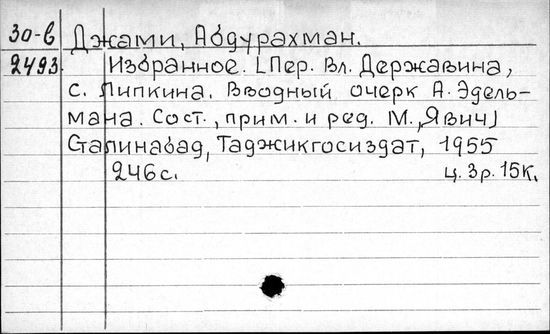 30-в Джами, Абдурахман.
2493. Избранное. [Пер. Вл. Державина,
С. Липкина. Вводный очерк А. Эдель-
мана. Сост., прим. и ред. М., Явич]
Сталинабад, Таджикгосиздат, 1955
246 с. ц. 3р. 15к.